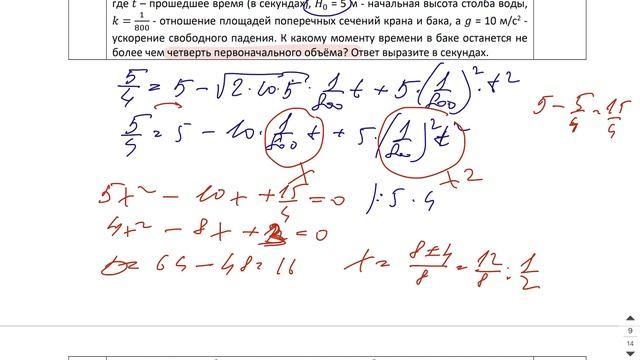 где t – прошедшее время (в секундах), H₀ = 5 м - начальная высота столба воды,
k = 1/800 - отношение площадей поперечных сечений крана и бака, а g = 10 м/с² -
ускорение свободного падения. К какому моменту времени в баке останется не
более чем четверть первоначального объёма? Ответ выразите в секундах.
5/4 = 5 - √(2·10·5) · 1/800 t + 5·(1/800)² · t²
5 - 5/4 = 15/4
5/4 = 5 - 10 · 1/800 t + 5·(1/800)² t²
x x2
5x² - 10x + 15/4 = 0 /:5·4
4x² - 8x + 3 = 0
D = 64 - 48 = 16 x = 8±4/8 = 12/8 ; 1/2
9
14